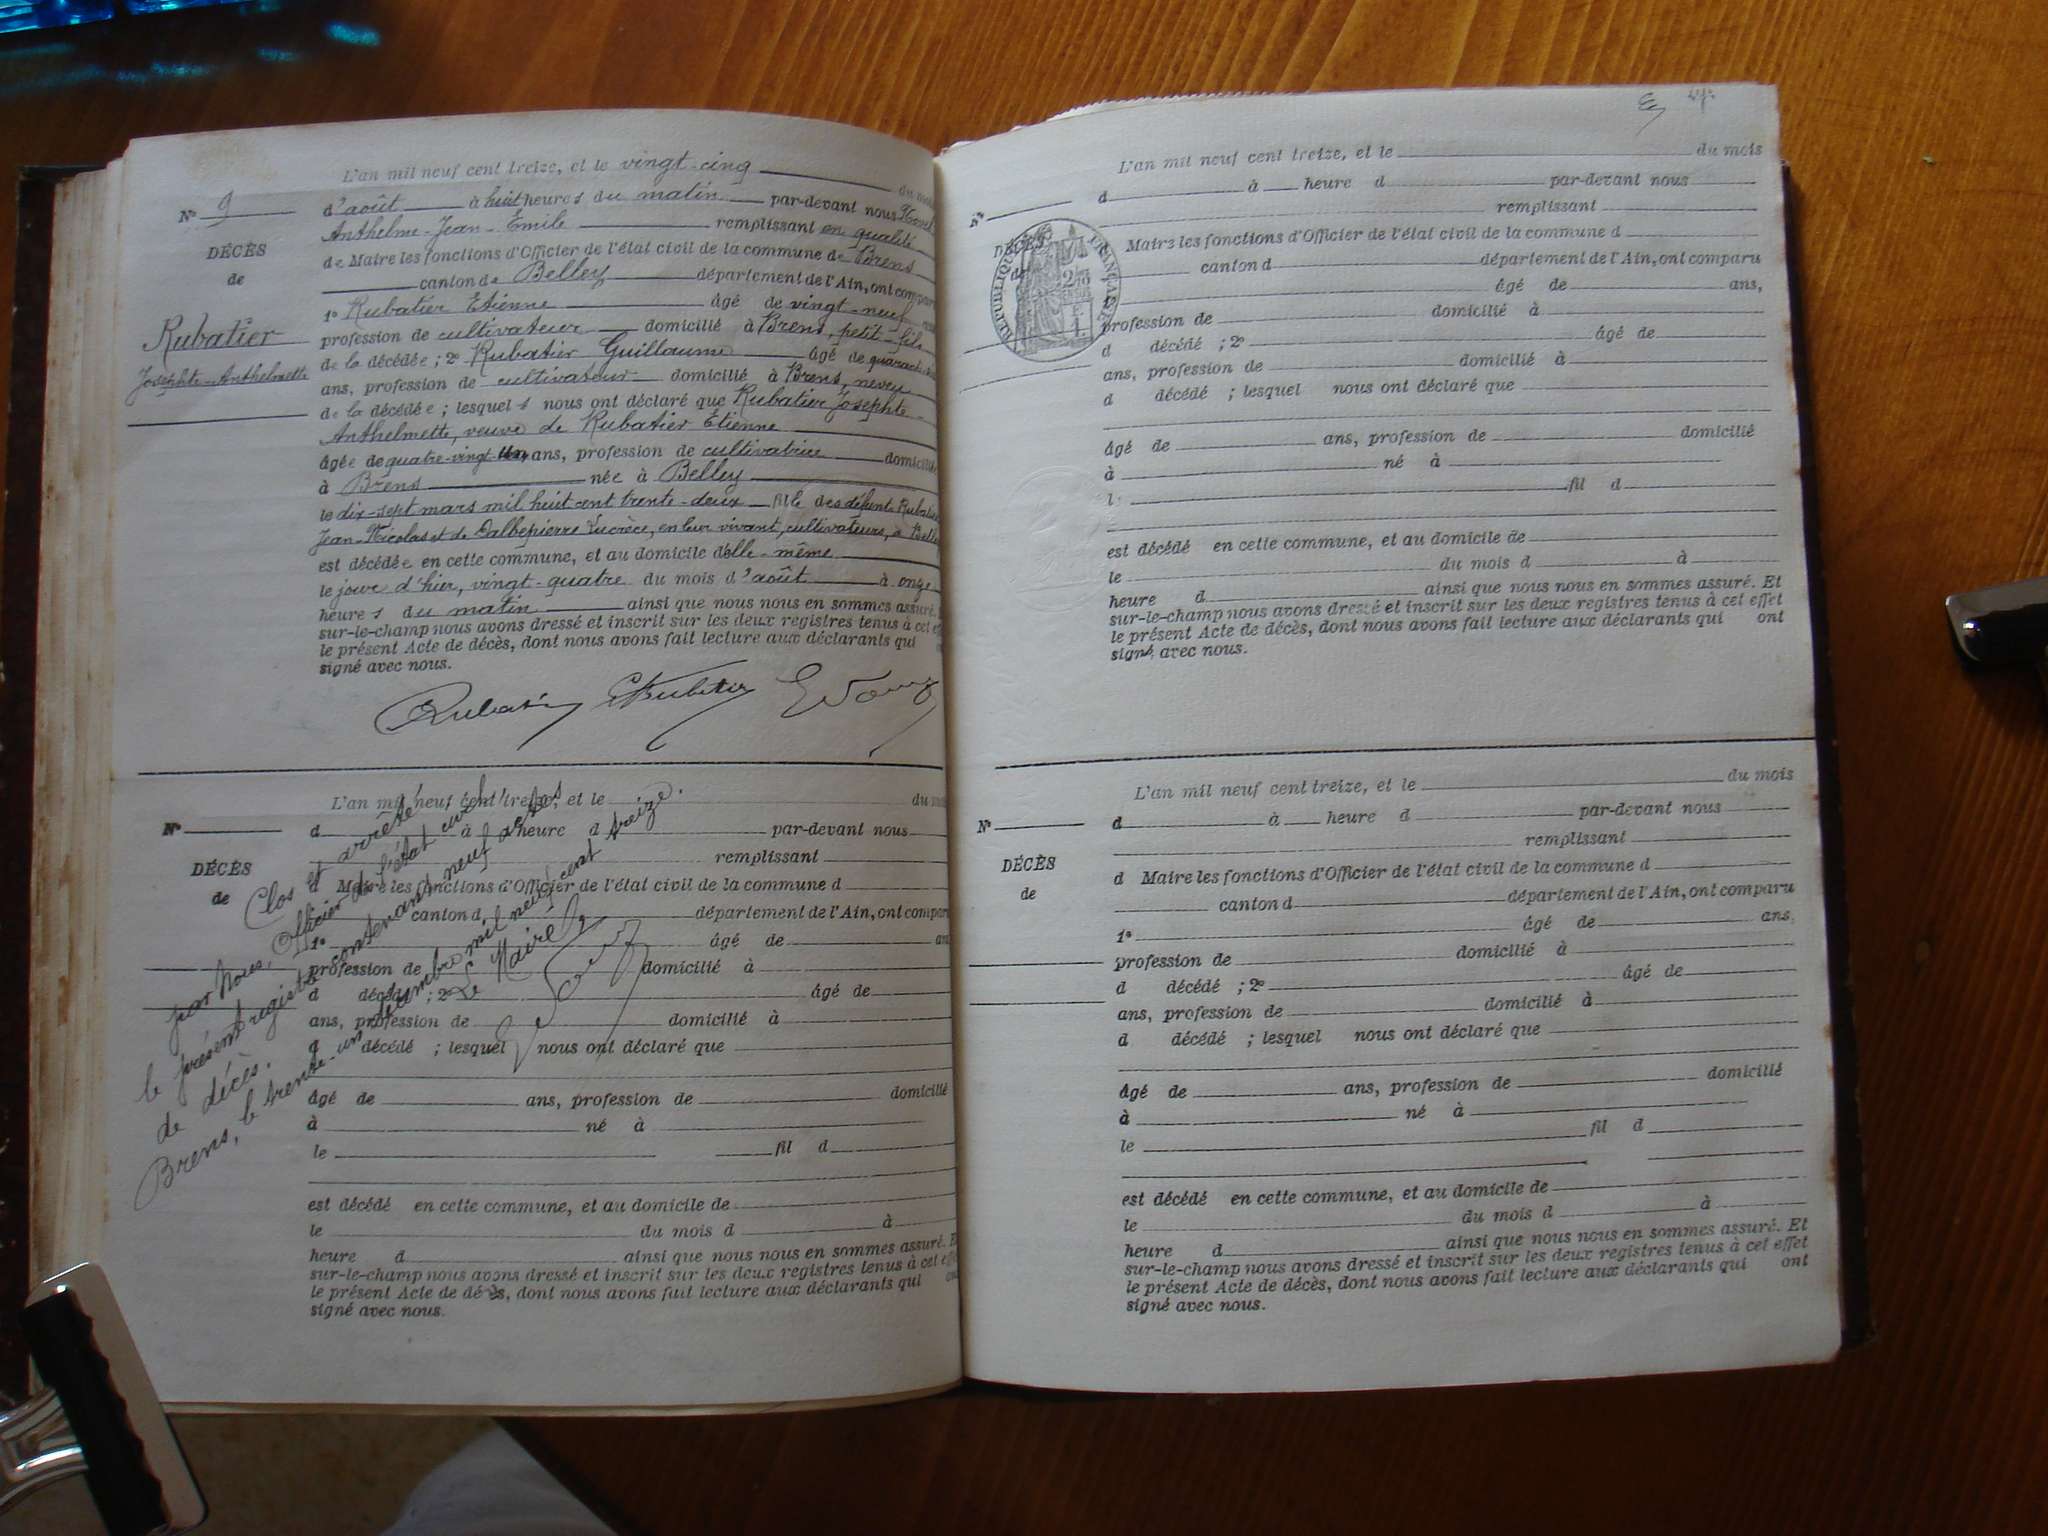 L'an mil neuf cent treize, et le vingt-cinq du
Nº 9
d'août à huit heures du matin par-devant nous
Anthelme-Jean-Emile remplissant en qualité
DÉCÈS
de Maire les fonctions d'Officier de l'état civil de la commune de Brens
de
canton de Belley département de l'Ain, ont
1º Rubatier Etienne âgé de vingt-neuf
Rubatier
profession de cultivateur domicilié à Brens, petit-fils
de la décédée ; 2º Rubatier Guillaume âgé de
Josephte-Anthelmette
ans, profession de cultivateur domicilié à Brens, neveu
de la décédée ; lesquels nous ont déclaré que Rubatier Josephte
Anthelmette, veuve de Rubatier Etienne
âgée de quatre-vingt-un ans, profession de cultivatrice domicilié
à Brens née à Belley
le dix-sept mars mil huit cent trente-deux fille des défunts
Jean-Nicolas et de Dalbepierre Lucrèce, en leur vivant, cultivateurs, à
est décédée en cette commune, et au domicile d'elle-même
le jour d'hier, vingt-quatre du mois d'août à onze
heures du matin ainsi que nous nous en sommes assuré.
sur-le-champ nous avons dressé et inscrit sur les deux registres tenus à cet
le présent Acte de décès, dont nous avons fait lecture aux déclarants qui
signé avec nous.
Rubatier
L'an mil neuf cent treize, et le du
Nº
d à heure d par-devant nous
remplissant
DÉCÈS
d Maire les fonctions d'Officier de l'état civil de la commune d
de
canton d département de l'Ain, ont
1º âgé de
profession de domicilié à
d décédé ; 2º âgé de
ans, profession de domicilié à
d décédé ; lesquel nous ont déclaré que
âgé de ans, profession de domicilié
à né à
le fil d
est décédé en cette commune, et au domicile de
le du mois d à
heure d ainsi que nous nous en sommes assuré.
sur-le-champ nous avons dressé et inscrit sur les deux registres tenus à cet
le présent Acte de décès, dont nous avons fait lecture aux déclarants qui
signé avec nous.
Clos et arrêté
par Nous, Officier de l'état civil
le présent registre contenant neuf actes
de décès.
Brens, le trente-un décembre mil neuf cent treize.
Le Maire
L'an mil neuf cent treize, et le du mois
d à heure d par-devant nous
Nº
remplissant
DÉCÈS
d Maire les fonctions d'Officier de l'état civil de la commune d
de
canton d département de l'Ain, ont comparu
âgé de ans,
profession de domicilié à
d décédé ; 2º âgé de
ans, profession de domicilié à
d décédé ; lesquel nous ont déclaré que
âgé de ans, profession de domicilié
à né à
l fil d
est décédé en cette commune, et au domicile de
le du mois d à
heure d ainsi que nous nous en sommes assuré. Et
sur-le-champ nous avons dressé et inscrit sur les deux registres tenus à cet effet
le présent Acte de décès, dont nous avons fait lecture aux déclarants qui ont
signé avec nous.
RÉPUBLIQUE FRANÇAISE
L'an mil neuf cent treize, et le du mois
d à heure d par-devant nous
Nº
remplissant
DÉCÈS
d Maire les fonctions d'Officier de l'état civil de la commune d
de
canton d département de l'Ain, ont comparu
1º âgé de ans,
profession de domicilié à
d décédé ; 2º âgé de
ans, profession de domicilié à
d décédé ; lesquel nous ont déclaré que
âgé de ans, profession de domicilié
à né à
le fil d
est décédé en cette commune, et au domicile de
le du mois d à
heure d ainsi que nous nous en sommes assuré. Et
sur-le-champ nous avons dressé et inscrit sur les deux registres tenus à cet effet
le présent Acte de décès, dont nous avons fait lecture aux déclarants qui ont
signé avec nous.